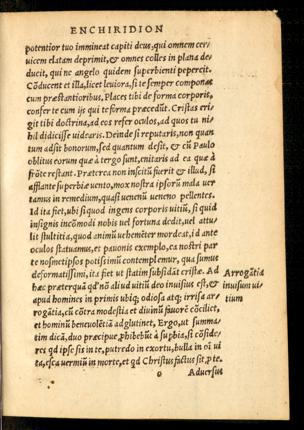 ENCHIRIDION
potentior tuo immineat capiti deus, qui omnem cer¬
uicem elatam deprimit, & omnes colles in plana de
ducit, qui ne angelo quidem superbienti pepercit.
Cōducent et illa, licet leuiora, si te semper componas
cum præstantioribus. Places tibi de forma corporis,
confer te cum ijs qui te forma præcedūt. Cristas eri
git tibi doctrina, ad eos refer oculos, ad quos tu ni¬
hil didicisse uidearis. Deinde si reputaris, non quan
tum adsit bonorum, sed quantum desit, & cū Paulo
oblitus eorum quæ à tergo sunt, enitaris ad ea quæ à
frōte restant. Præterea non inscitū fuerit & illud, si
afflante superbiæ uento, mox nostra ipsorū mala uer
tamus in remedium, quasi uenenū ueneno pellentes.
Id ita fiet, ubi si quod ingens corporis uitiū, si quid
insignis incōmodi nobis uel fortuna dedit, uel attu¬
lit stultitia, quod animū uehemēter mordeat, id ante
oculos statuamus, et pauonis exemplo, ea nostri par
te nosmetipsos potissimū contemplemur, qua sumus
deformatissimi, ita fiet ut statim subsidāt cristæ. Ad
hæc præterquā qđ nō aliud uitiū deo inuisius est, &
apud homines in primis ubiq; odiosa atq; irrisa ar¬
rogātia, cū cōtra modestia et diuinū fauorē cōciliet,
et hominū beneuolētiā adglutinet, Ergo, ut summa¬
tim dicā, duo præcipue ꝓhibebūt à supbia, si cōside¬
res qd ipse sis in te, putredo in exortu, bulla in oī ui
ta, esca vermiū in morte, et qd Christus factus sit, p te.
Arrogātia
inuisum ui
tium
o
Aduersus